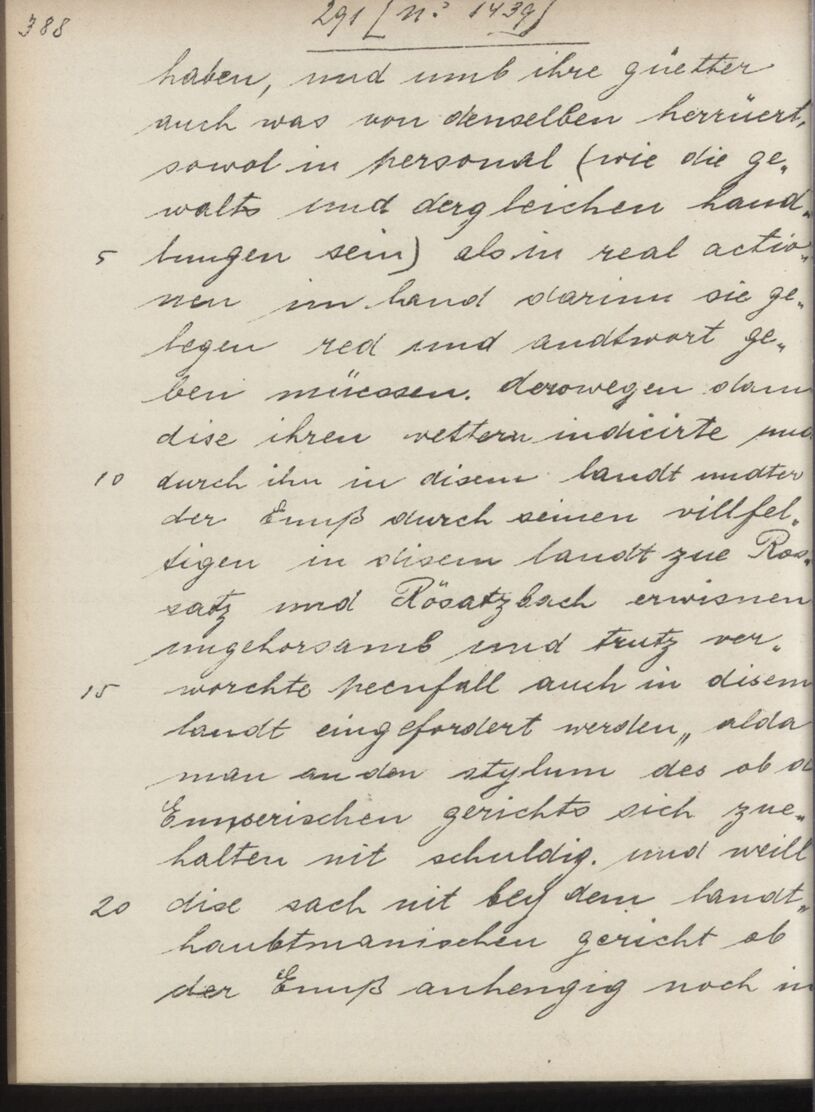 388
291 [n.° 1439]
haben, und umb ihre güetter
auch was von denselben herrüert,
sowol in personal (wie die ge„
walts und dergleichen hand„
5 lungen sein) als in real actio„
nen im land darinn sie ge„
legen red und andtwort ge„
ben müessen. derowegen dann
dise ihren vettern indicirte und
10 durch ihn in disem landt undter
der Ennß durch seinen villfel„
tigen in disem landt zue Ros„
satz und Rösatzbach erwisnen
ungehorsamb und trutz ver„
15 worchte peenfall auch in disem
landt eingefordert werden„ alda
man an den stylum des ob d
Ennserischen gerichts sich zue„
halten nit schuldig. und weill
20 dise sach nit bey dem landt„
haubtmanischen gericht ob
der Ennß anhengig noch in